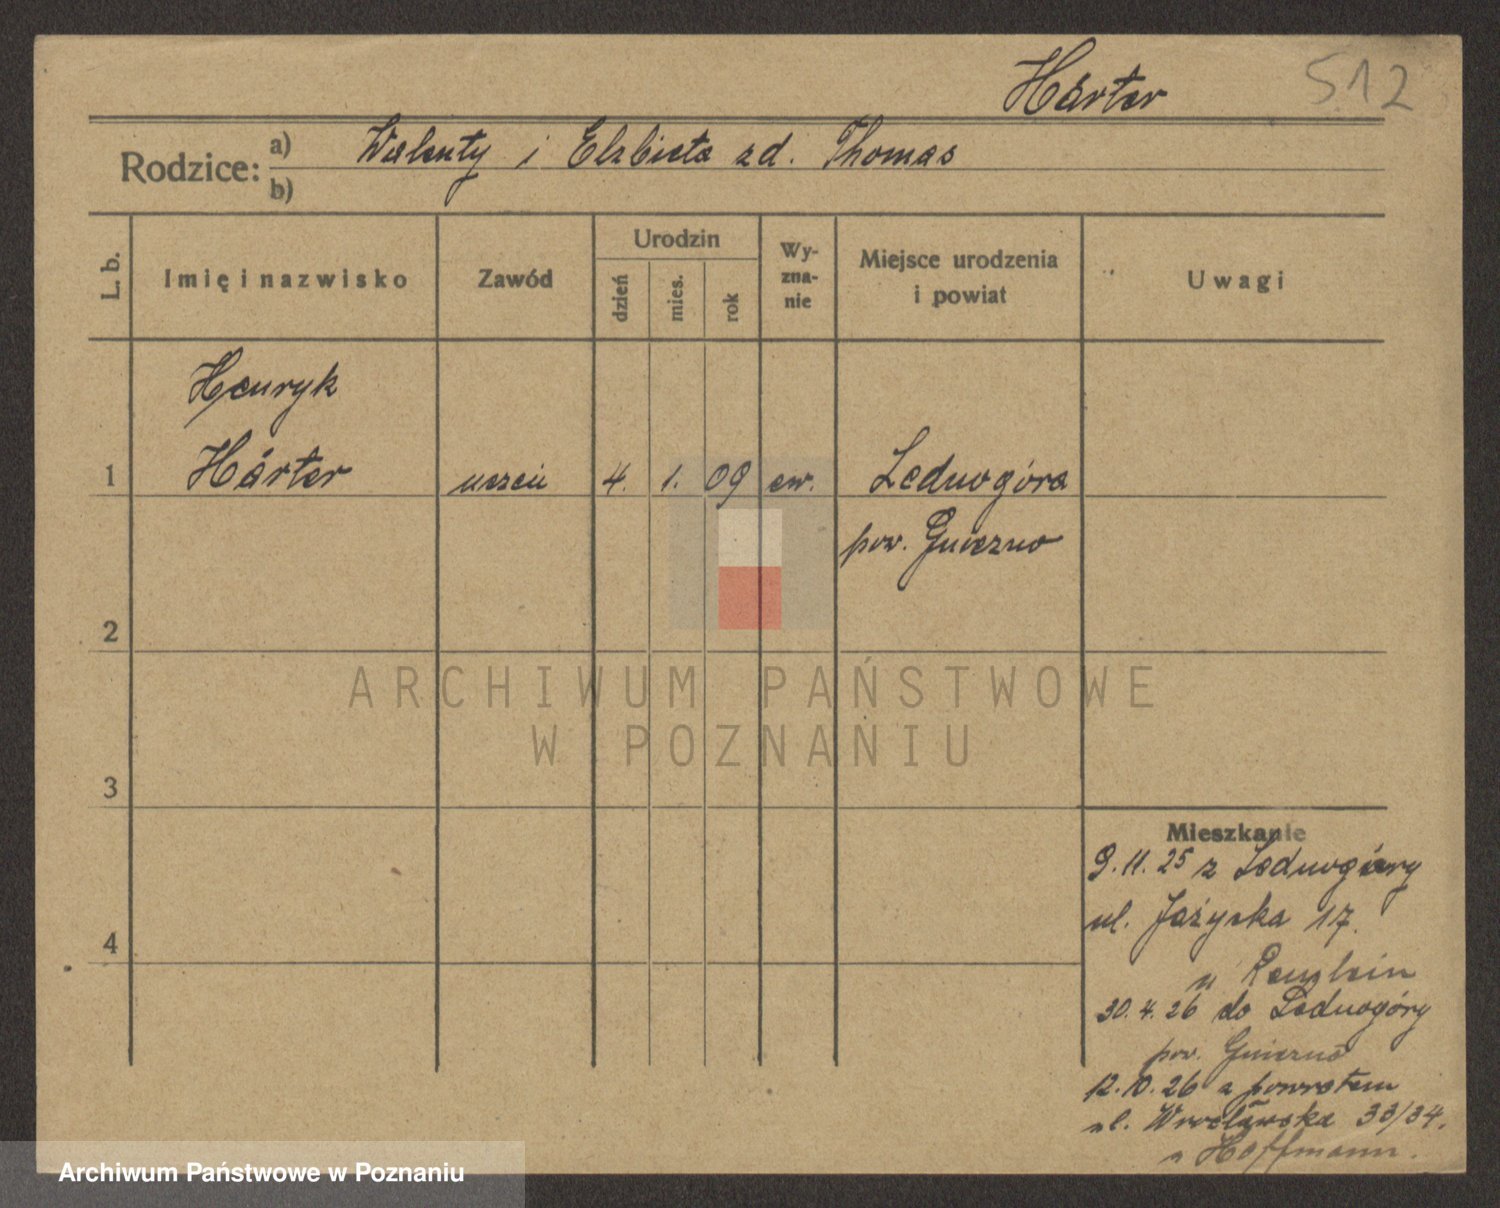 Härter
512
Rodzice: a) Walenty i Elżbieta zd. Thomas
b)
L. b.
Imię i nazwisko
Zawód
Urodzin
dzień
mies.
rok
Wy-
zna-
nie
Miejsce urodzenia
i powiat
Uwagi
Henryk
1 Härter uczeń 4. 1. 09 ew. Lednogóra
pow. Gniezno
2
3
4
Mieszkanie
9.11.25 z Lednogóry
ul. 17.
u
30.4.26 do Lednogóry
pow. Gniezno
12.10.26 z powrotem
ul. Wrocławska 33/34.
u Hoffmann.
ARCHIWUM PAŃSTWOWE
W POZNANIU
Archiwum Państwowe w Poznaniu